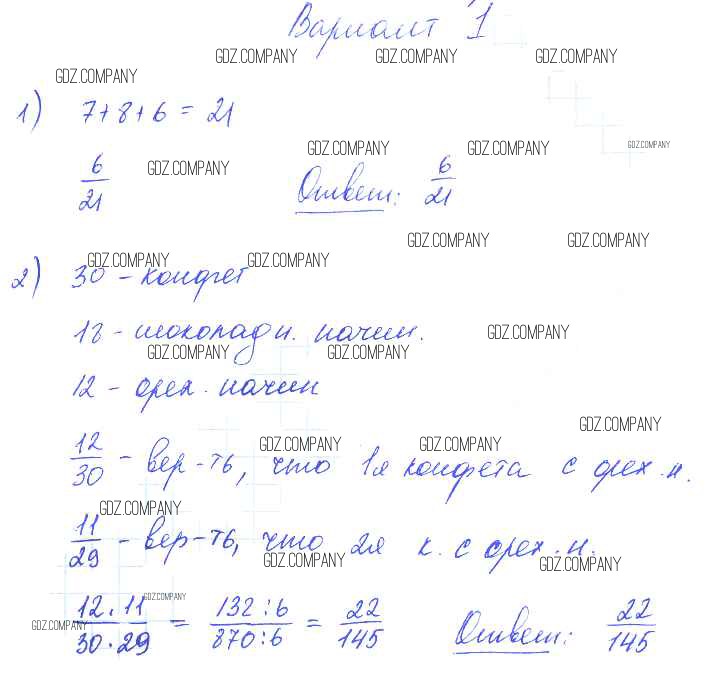 Вариант 1
GDZ.COMPANY GDZ.COMPANY GDZ.COMPANY
GDZ.COMPANY
1) 7+8+6 = 21
GDZ.COMPANY GDZ.COMPANY GDZ.COMPANY
6/21 GDZ.COMPANY Ответ: 6/21
GDZ.COMPANY GDZ.COMPANY
GDZ.COMPANY GDZ.COMPANY
2) 30 - конфет
18 - шоколадн. начин. GDZ.COMPANY
GDZ.COMPANY GDZ.COMPANY
12 - орех. начин
GDZ.COMPANY
GDZ.COMPANY GDZ.COMPANY
12/30 - вер-ть, что 1я конфета с орех. н.
GDZ.COMPANY
11/29 - вер-ть, что 2я к. с орех. н.
GDZ.COMPANY GDZ.COMPANY
GDZ.COMPANY
GDZ.COMPANY
12·11/30·29 = 132:6/870:6 = 22/145 Ответ: 22/145